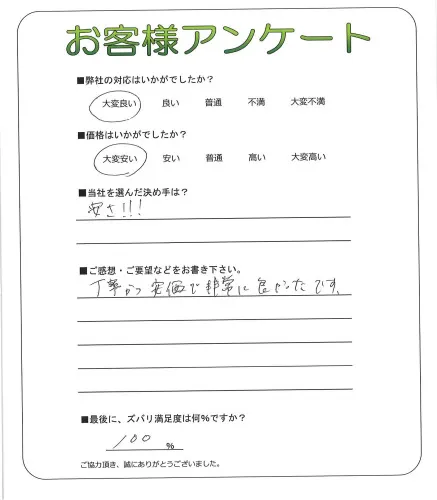 お客様アンケート
■弊社の対応はいかがでしたか?
大変良い 良い 普通 不満 大変不満
■価格はいかがでしたか?
大変安い 安い 普通 高い 大変高い
■当社を選んだ決め手は?
安さ!!!
■ご感想・ご要望などをお書き下さい。
丁寧かつ安価で非常に良かったです。
■最後に、ズバリ満足度は何%ですか?
100 %
ご協力頂き、誠にありがとうございました。